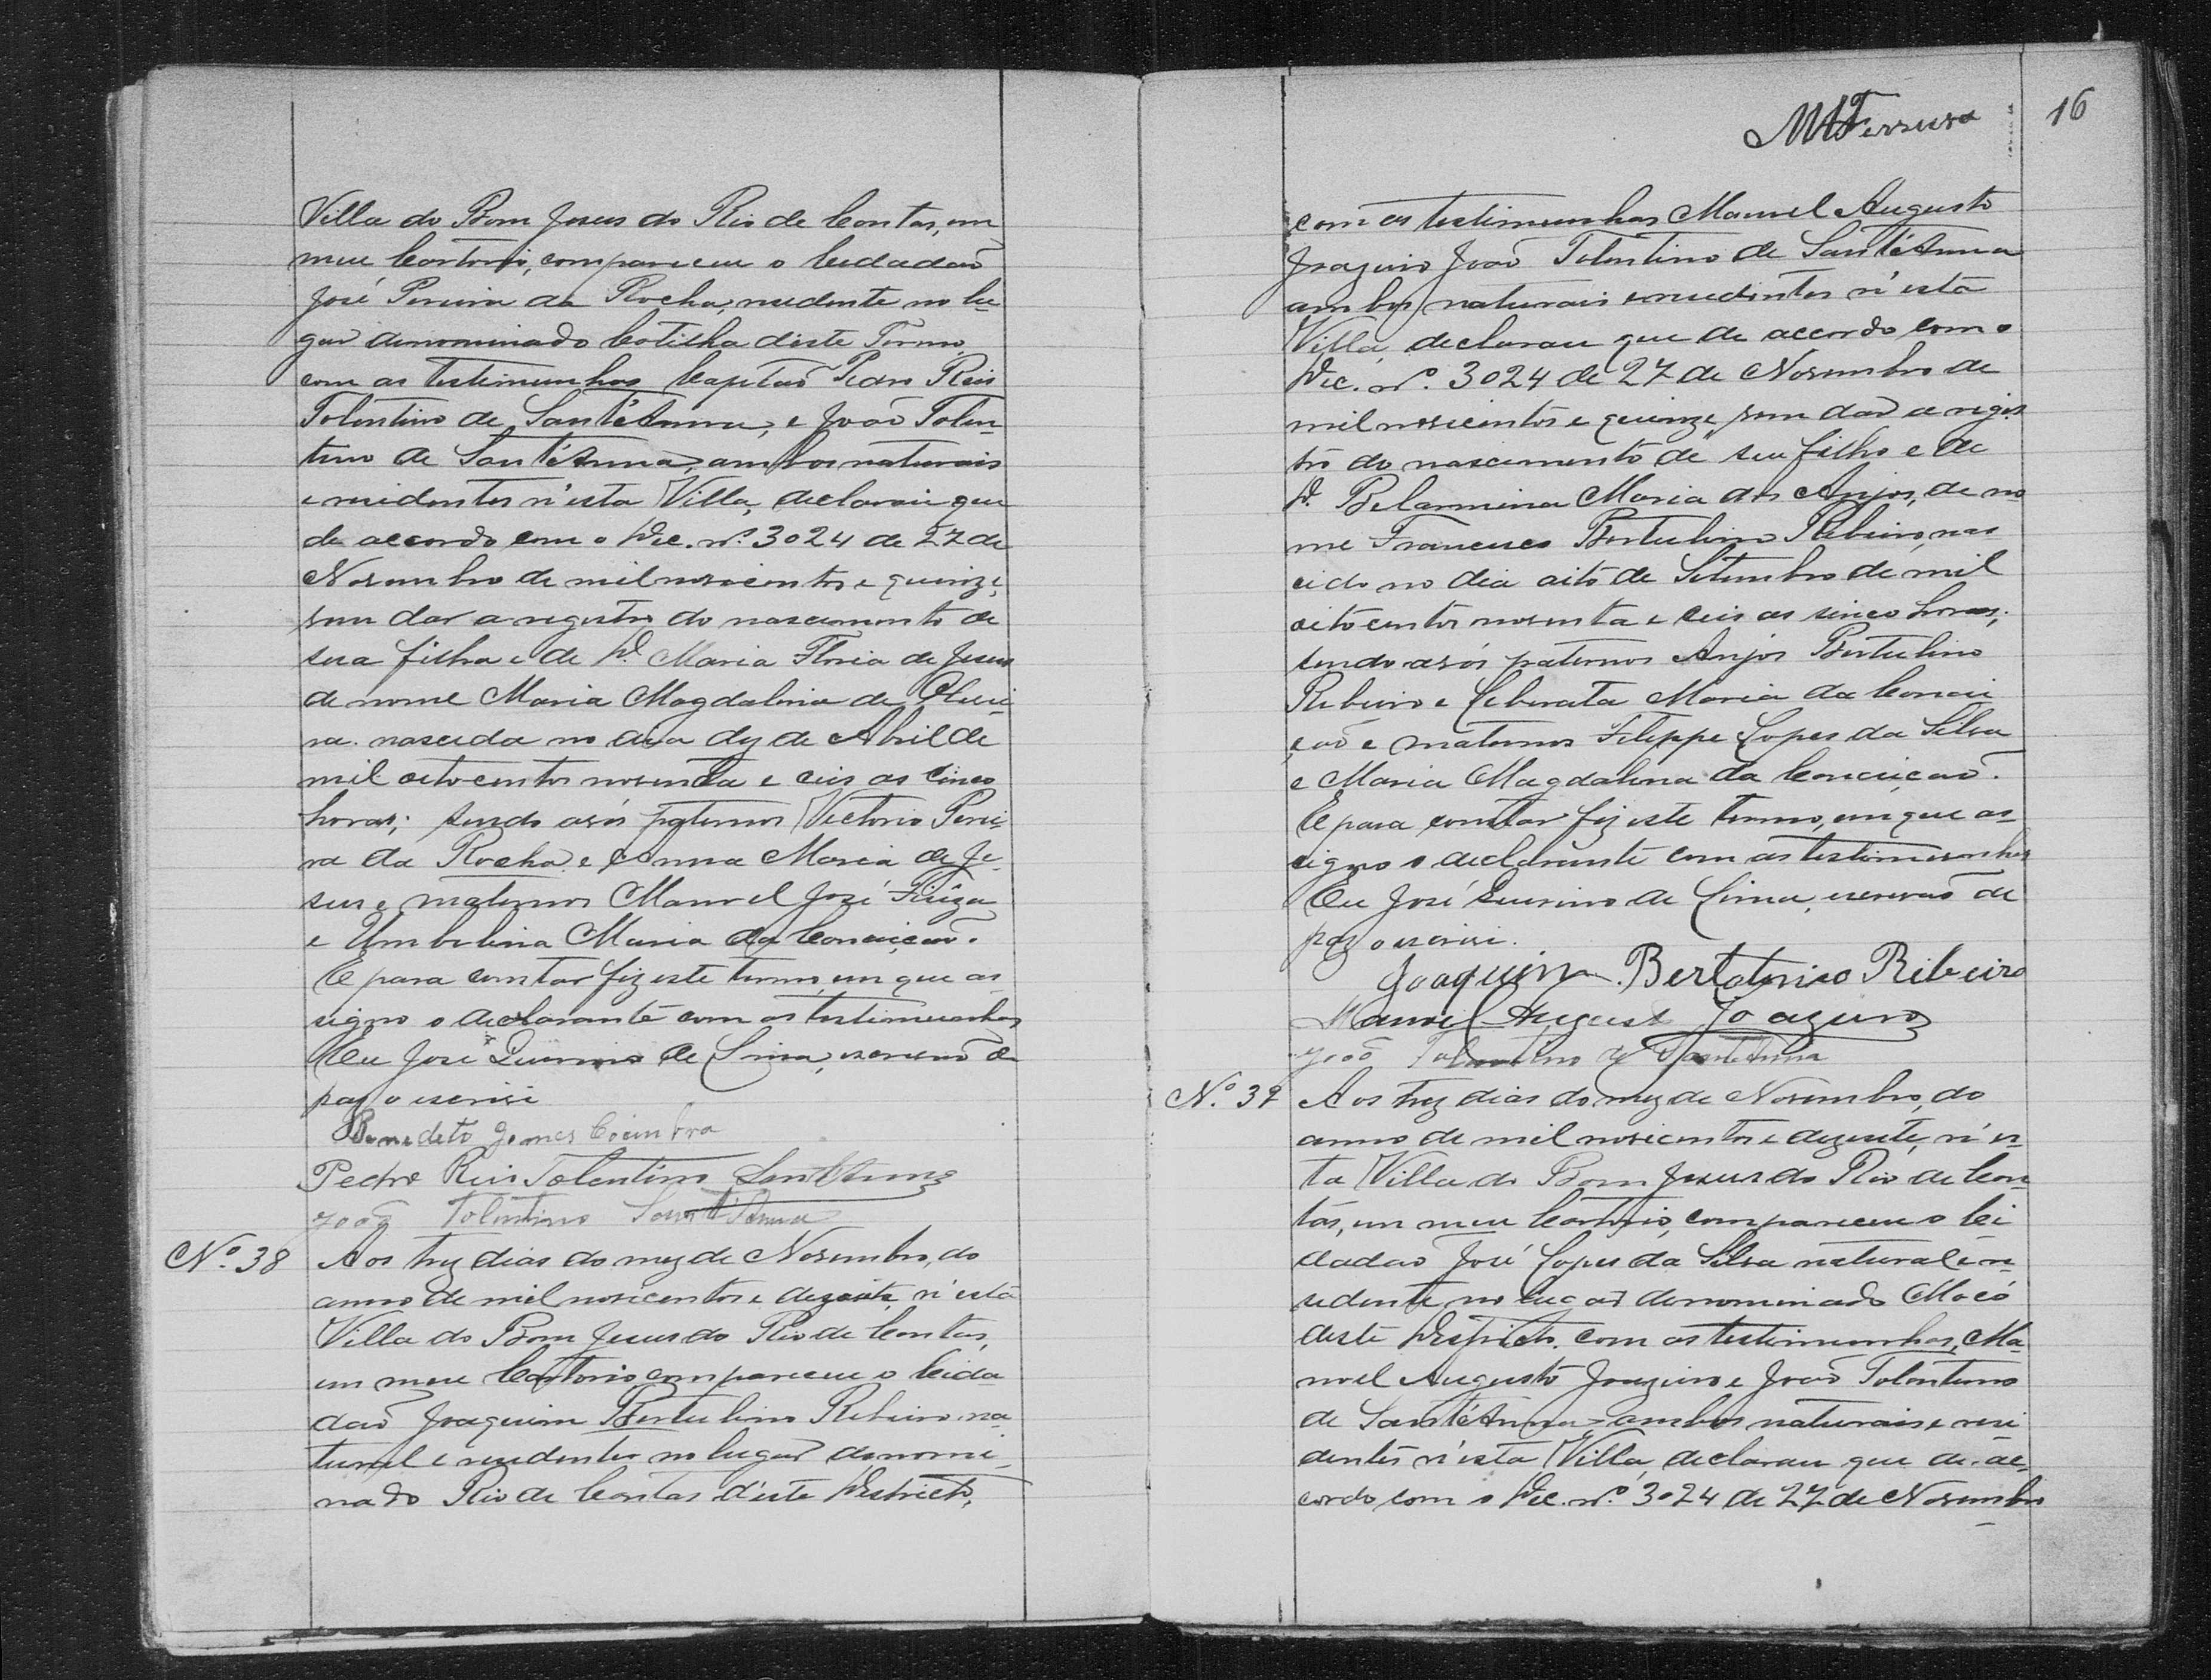 Villa do Bom Jesus do Rio de Contas, em
meu Cartorio, compareceu o Cidadão
José Pereira da Rocha, residente no lu-
gar denominado Cotilha d'este Termo
com as testimunhas Capitão Pedro Reis
Tolentino de Sant'Anna, e João Tolen-
tino de Sant'Anna, ambos naturais
e residentes n'esta Villa, declarou que
de accordo com o Dec. nº. 3024 de 27 de
Novembro de mil novicentos e quinze,
vem dar a registro do nascimento de
sua filha e de D. Maria Floria de Jesus
de nome Maria Magdalena de Olivei-
ra. nascida no dia dez de Abril de
mil oitocentos noventa e ceis as cinco
horas; sendo avós paternos Victorio Perei-
ra da Rocha e Anna Maria de Je-
sus e maternos Manoel José Fiuza
e Umbelina Maria da Conceição.
E para constar fiz este termo, em que as-
signo o declarante com as testimunhas
Eu José Quirino de Lima, escrivão de
paz o escrivi
Benedito Gomes Coimbra
Pedro Reis Tolentino Sant'Anna
João Tolentino Sant'Anna
Nº. 38 Aos trez dias do mez de Novembro, do
anno de mil novicentos e dezoito, n'esta
Villa do Bom Jesus do Rio de Contas,
em meu Cartorio compareceu o Cida-
dão Joaquim Bertulino Ribeiro na-
tural e residente no lugar denomi-
nado Rio de Contas d'este Districto,
MAFerreira 16
com as testimunhas Manoel Augusto
Joazeiro João Tolentino de Sant'Anna
ambos naturais e residentes n'esta
Villa, declarou que de accordo com o
Dec. nº. 3024 de 27 de Novembro de
mil novicentos e quinze, vem dar a regis-
tro do nascimento de seu filho e de
D. Belarmina Maria dos Anjos, de no-
me Francisco Bertulino Ribeiro, nas-
cido no dia oito de Setembro de mil
oitocentos noventa e ceis as sinco horas;
sendo avós paternos Anjos Bertulino
Ribeiro e Leberata Maria da Concei-
ção e maternos Fileppe Lopes da Silva
e Maria Magdalena da Conceição.
E para constar fiz este termo, em que as-
signo o declarante com as testimunhas
Eu José Quirino de Lima, escrivão de
paz o escrivi.
Joaquim Bertolino Ribeiro
Manoel Augusto Joazeiro
João Tolentino de Sant'Anna
Nº. 39 Aos trez dias do mez de Novembro, do
anno de mil novicentos e dezoito, n'es-
ta Villa do Bom Jesus do Rio de Con-
tas, em meu Cartorio, compareceu o Ci-
dadão José Lopes da Silva natural e re-
sidente no lugar denominado Mocó
d'este Districto, com as testimunhas, Ma-
noel Augusto Joazeiro e João Tolentino
de Sant'Anna, ambos naturais e resi-
dentes n'esta Villa, declarou que de ac-
cordo com o Dec. nº. 3024 de 27 de Novembro